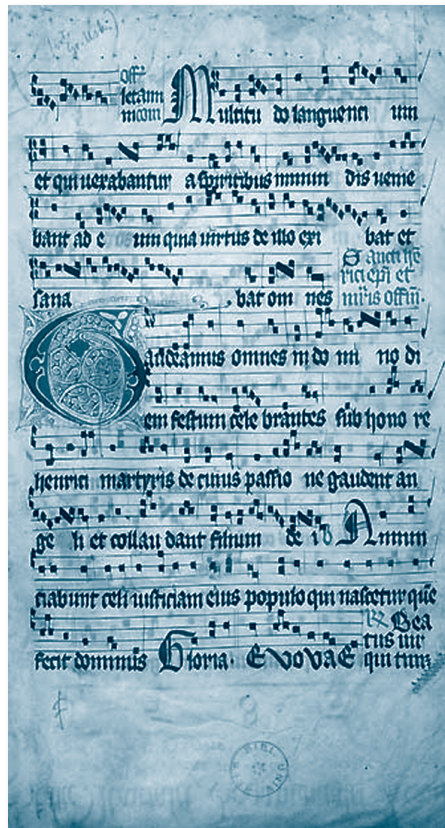 Multitu do languenci um
et qui uexabantur a spiritibus inmun dis uenie
bant ad e um quia uirtus de illo exi bat et
sana bat om nes
Gaudeamus omnes in do mi no di
em festum cele brantes sub hono re
henrici martyris de cuius passio ne gaudent an
ge li et collau dant filium de i Annun
ciabunt celi iusticiam eius populo qui nascetur que
fecit dominus Gloria. EVOVAE
Bea
tus uir
qui tim